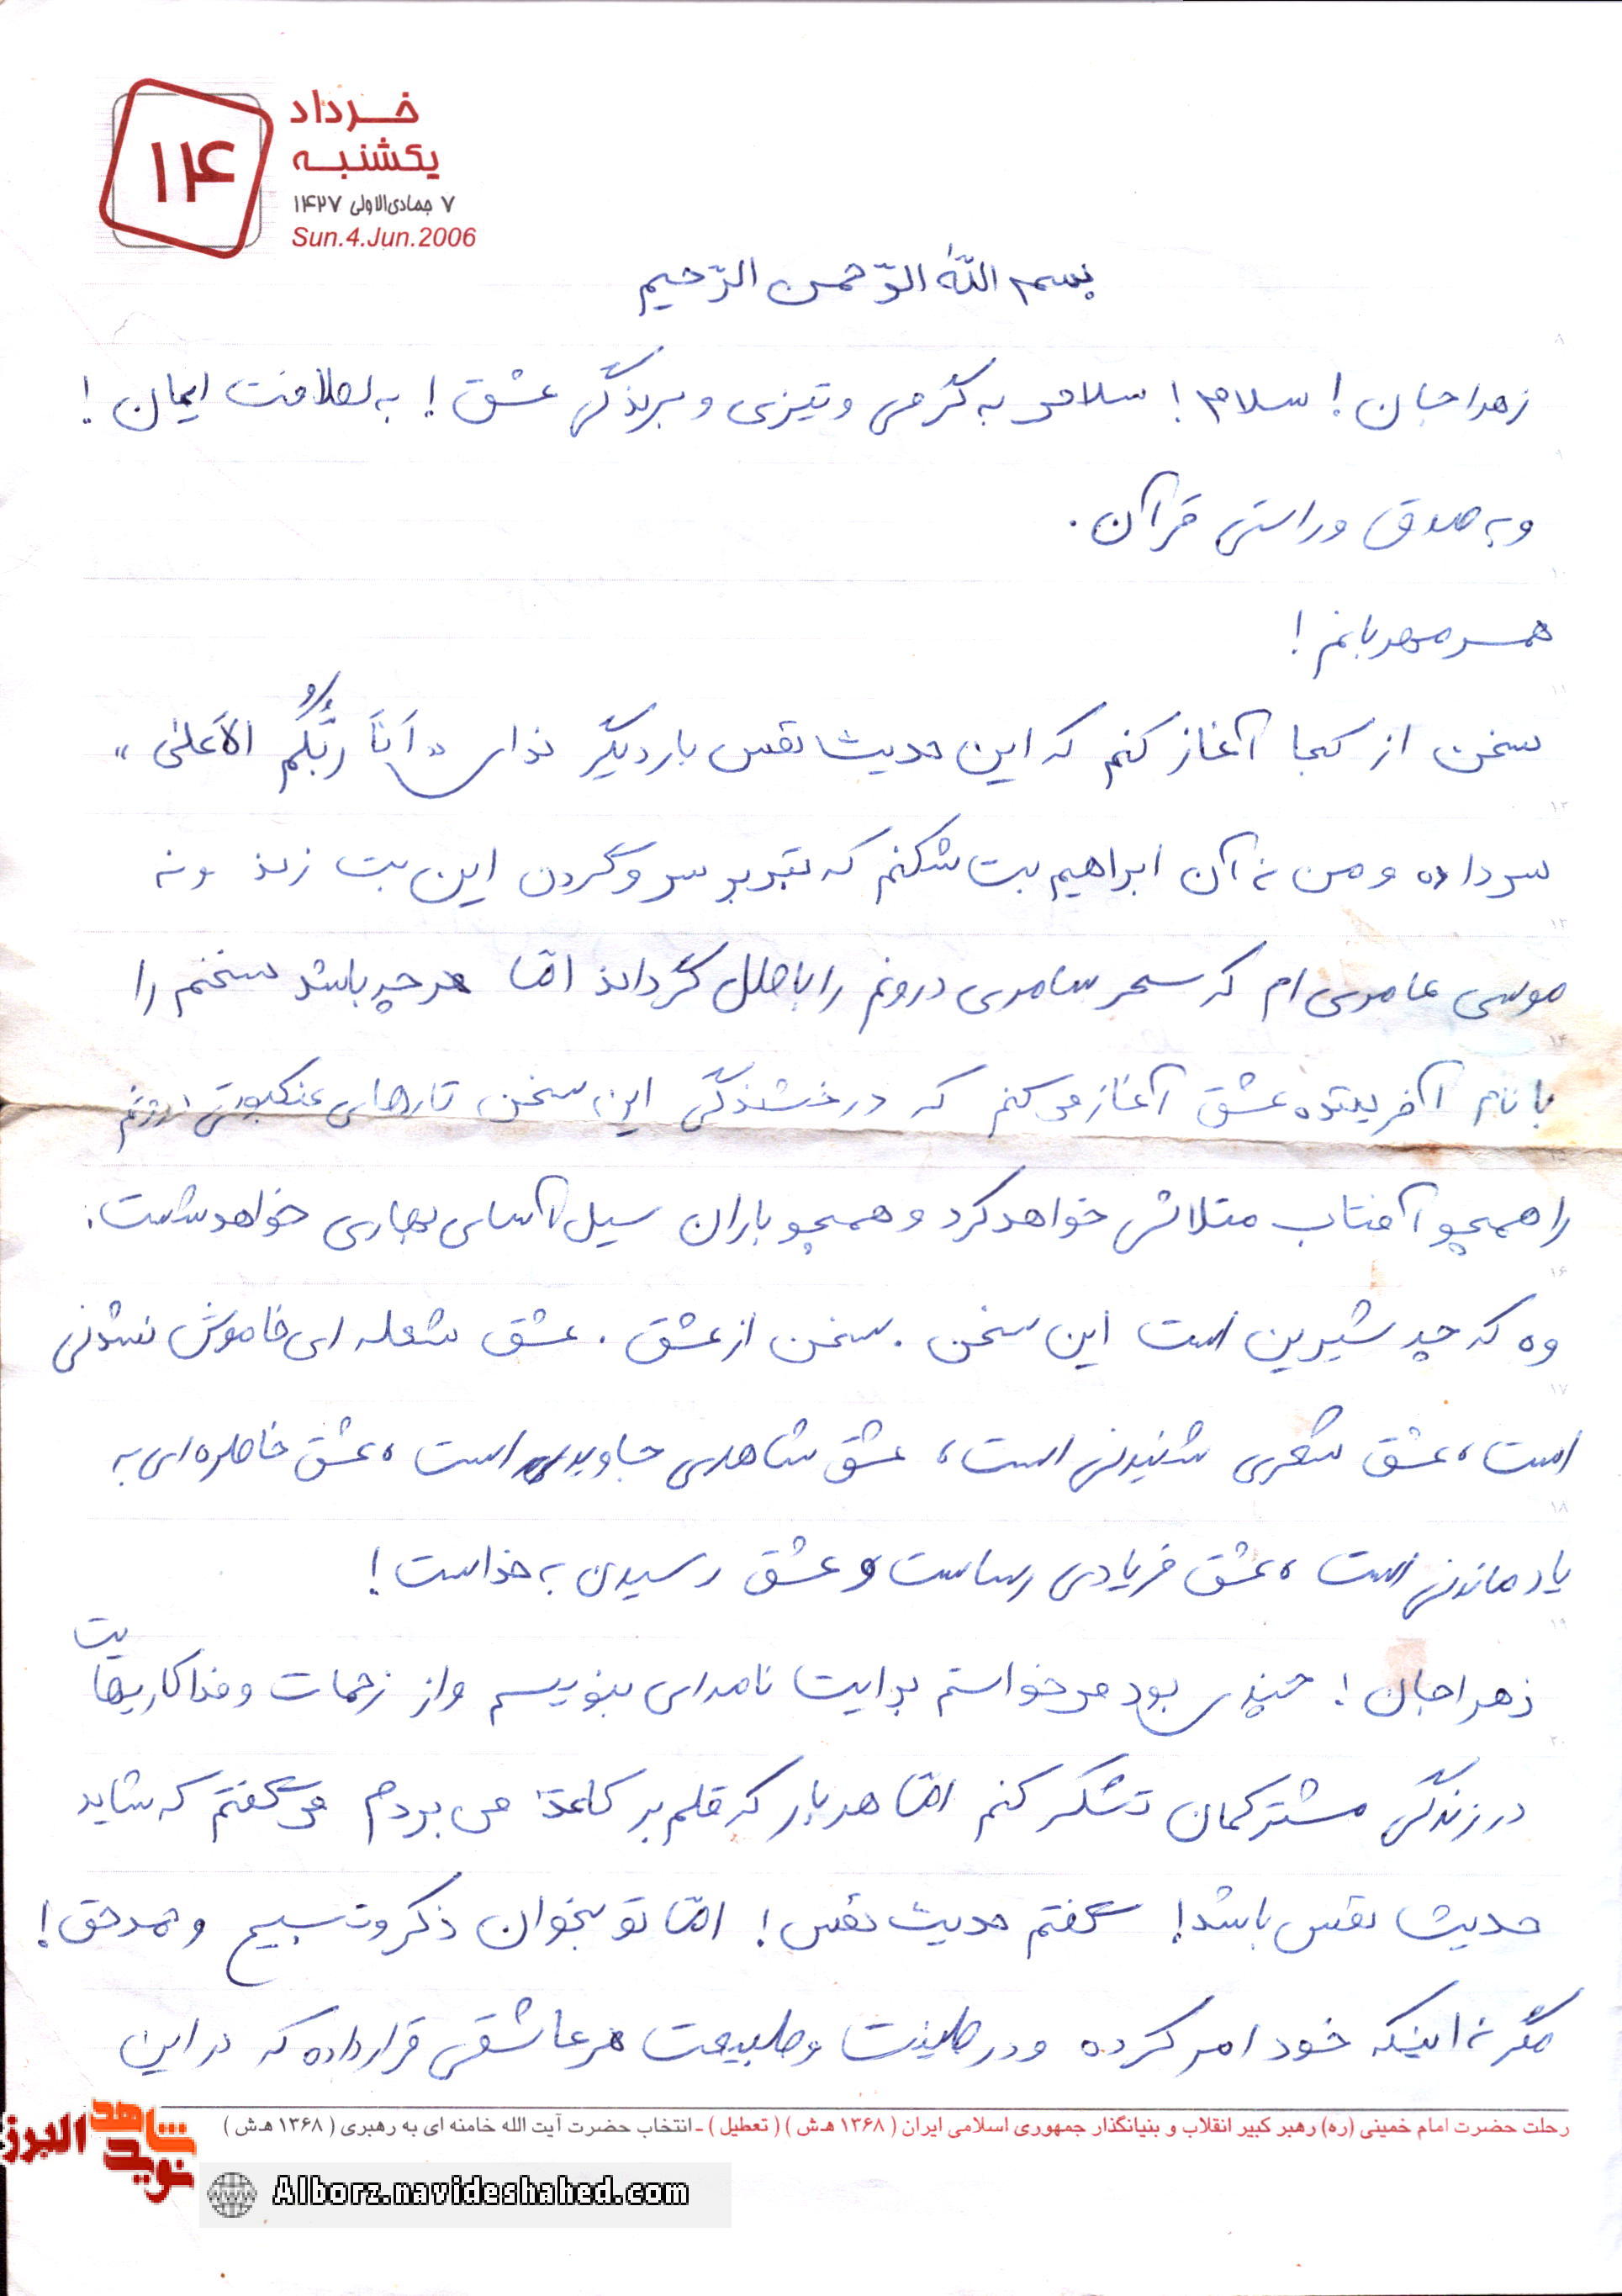 خرداد
یکشنبه
۱۴
۷ جمادی‌الاولی ۱۴۲۷
Sun.4.Jun.2006
بسم اللّه الرّحمن الرّحیم
زهرا جان! سلام! سلامی به گرمی و تیزی و برندگی عشق! به لطافت ایمان!
و به صدق و راستی قرآن.
همسر مهربانم!
سخن از کجا آغاز کنم که این حدیث نفس بار دیگر ندای «أَنَا رَبُّكُمُ الأَعلیٰ»
سر داده و من نه آن ابراهیم بت شکنم که تبر بر سر و گردن این بت زند و نه
موسی عامری ام که سحر سامری درونم را باطل گرداند امّا هر چه باشد سخنم را
با نام آفریننده عشق آغاز می کنم که درخشندگی این سخن تارهای عنکبوتی درونم
را همچو آفتاب متلاشی خواهد کرد و همچو باران سیل آسای بهاری خواهد شست.
وه که چه شیرین است این سخن. سخن از عشق. عشق شعله ای خاموش نشدنی
است، عشق شعری شنیدنی است، عشق شاهدی جاوید است، عشق خاطره ای به
یاد ماندنی است، عشق فریادی رساست و عشق رسیدن به خداست!
زهرا جان! چندی بود می خواستم برایت نامه ای بنویسم و از زحمات و فداکاریهایت
در زندگی مشترکمان تشکر کنم امّا هر بار که قلم بر کاغذ می بردم می گفتم که شاید
حدیث نفس باشد! گفتم حدیث نفس! امّا تو بخوان ذکر و تسبیح و حمد حق!
مگر نه اینکه خود امر کرده و در طینت و طبیعت هر عاشقی قرار داده که در این
رحلت حضرت امام خمینی (ره) رهبر کبیر انقلاب و بنیانگذار جمهوری اسلامی ایران ( ۱۳۶۸ هـ.ش ) ( تعطیل ) ـ انتخاب حضرت آیت الله خامنه ای به رهبری ( ۱۳۶۸ هـ.ش )
نوید شاهد البرز
Alborz.navideshahed.com